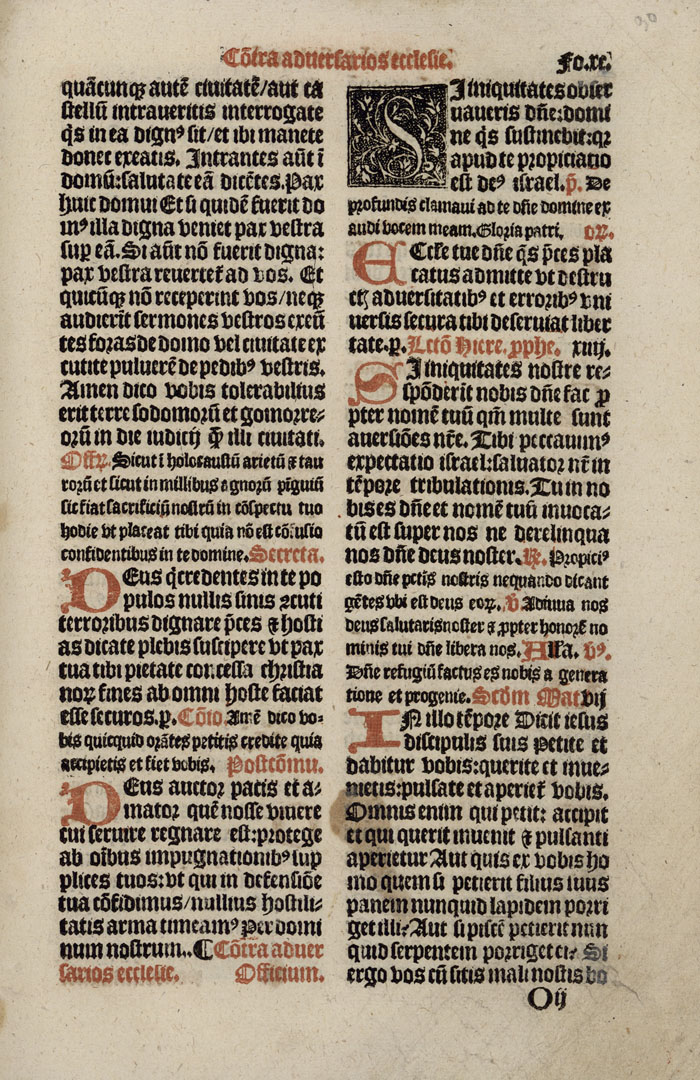 30
Cōtra aduersarios ecclesie.
Fo.xc.
quācunqꝫ autē ciuitatē/aut ca
stellū intraueritis interrogate
q̄s in ea dignꝰ sit/et ibi manete
donec exeatis. Intrantes aūt ī
domū:salutate eā dicētes. Pax
huic domui Et si quidē fuerit do
mꝰ illa digna veniet pax vestra
suꝑ eā. Si aūt nō fuerit digna:
pax vestra reuertet̄ ad vos. Et
quicūqꝫ nō receperint vos/neqꝫ
audierīt sermones vestros exeū
tes foras de domo vel ciuitate ex
cutite puluerē de pedibꝰ vestris.
Amen dico vobis tolerabilius
erit terre sodomorū et gomorre-
orū in die iudicij q̄ȝ illi ciuitati.
Offꝝ. Sicut ī holocaustū arietū ⁊ tau
rorū et sicut in millibus agnorū pīguiū
sic fiat sacrificiū nostrū in cōspectu tuo
hodie vt placeat tibi quia nō est cōfusio
confidentibus in te domine. Secreta.
DEus q̄ credentes in te po
pulos nullis sinis ꝯcuti
terroribus dignare p̄ces ⁊ hosti
as dicate plebis suscipere vt pax
tua tibi pietate concessa christia
noꝝ fines ab omni hoste faciat
esse securos.p. Cōio. Amē dico vo-
bis quicquid orātes petitis credite quia
accipietis et fiet vobis. Postcōmu.
DEus auctor pacis et a-
mator quē nosse viuere
cui seruire regnare est:protege
ab oībus impugnationibꝰ sup
plices tuos:vt qui in defensiōe
tua cōfidimus/nullius hostili-
tatis arma timeamꝰ Per domi
num nostrum.. ¶ Cōtra aduer
sarios ecclesie. Officium.
SI iniquitates obser
uaueris dn̄e:domi
ne q̄s sustinebit:qꝛ
apud te propiciatio
est deꝰ israel. p̄. De
profundis clamaui ad te dn̄e domine ex
audi vocem meam. Gloria patri. oꝝ.
ECcl̄e tue dn̄e q̄s p̄ces pla
catus admitte vt destru
ctꝭ aduersitatibꝰ et erroribꝰ vni
uersis secura tibi deseruiat liber
tate.p. Lctiō Hiere. ꝓphe. xiiij.
SI iniquitates nostre re-
spōderīt nobis dn̄e fac ꝓ
pter nomē tuū qm̄ multe sunt
auersiōes nr̄e. Tibi peccauimꝰ
expectatio israel:saluator nr̄ in
tēpore tribulationis. Tu in no
bis es dn̄e et nomē tuū inuoca-
tū est super nos ne derelinqua
nos dn̄e deus noster. ℟. Propiciꝰ
esto dn̄e pctīs nostris nequando dicant
gētes vbi est deus eoꝝ. ℣ Adiuua nos
deus salutaris noster ⁊ ꝓpter honorē no
minis tui dn̄e libera nos. Alla. ℣ꝰ.
Dn̄e refugiū factus es nobis a genera
tione et progenie. Scd̄m Mat vij
IN illo tēpore Dicit iesus
discipulis suis Petite et
dabitur vobis:querite et inue-
nietis:pulsate et aperiet̄ vobis.
Omnis enim qui petit: accipit
et qui querit inuenit ⁊ pulsanti
aperietur Aut quis ex vobis ho
mo quem si petierit filius suus
panem nunquid lapidem porri
get illi? Aut si piscē petierit nun
quid serpentem porriget ei? Si
ergo vos cū sitis mali nostis bo
O ij